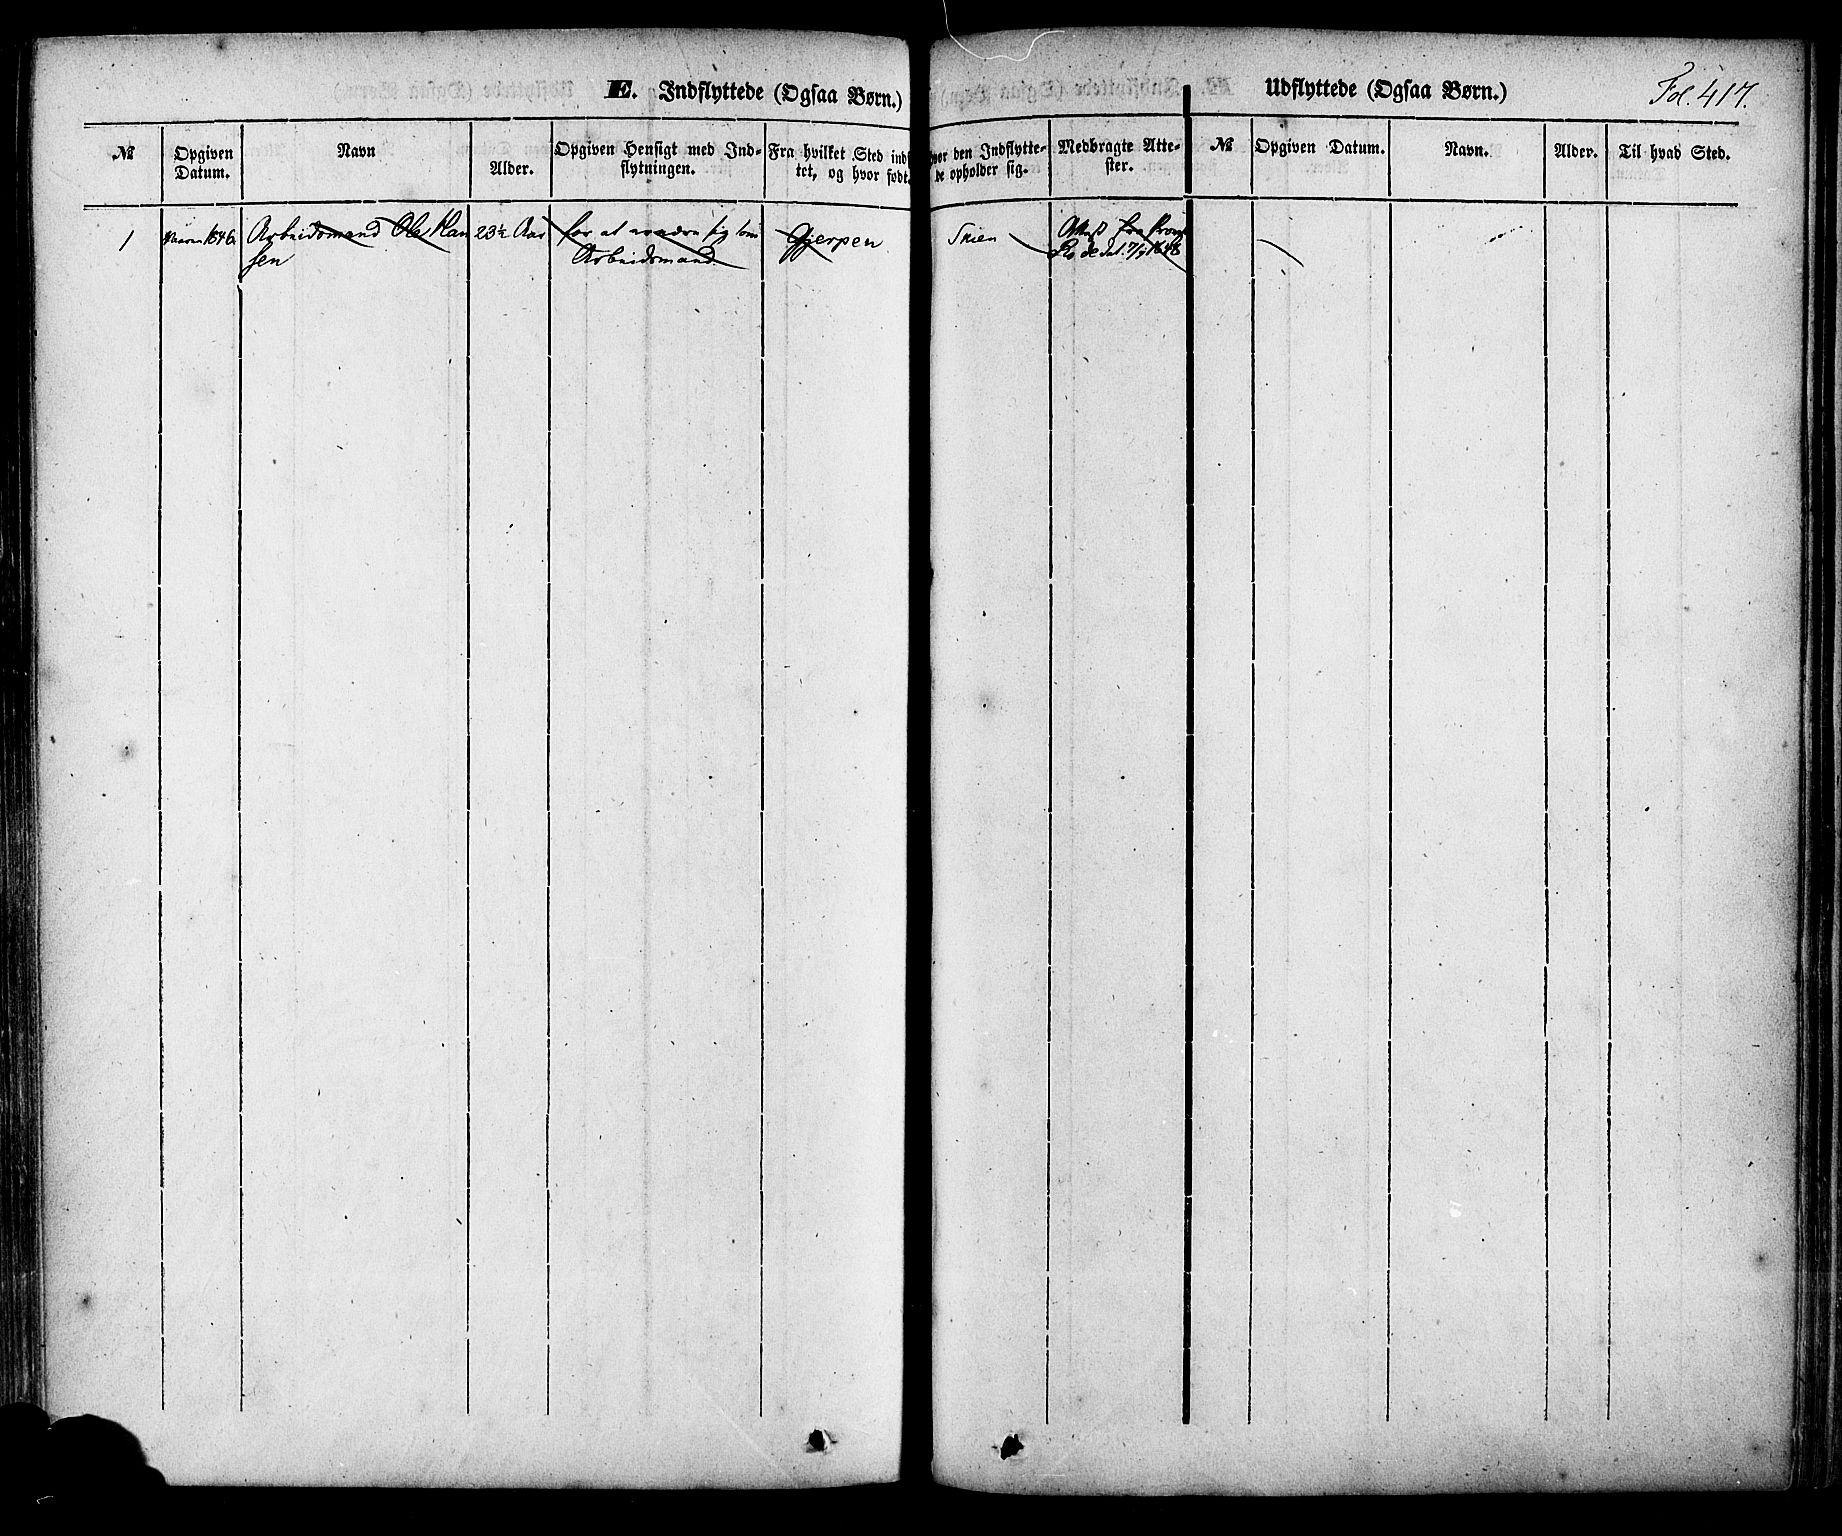 E. Indflyttede (Ogsaa Børn.)
Udflyttede (Ogsaa Børn.)
Fol. 417.
№
Opgiven
Datum.
Navn
Alder.
Opgiven Hensigt med Ind-
flytningen.
Fra hvilket Sted ind
tet, og hvor født.
vor den Indflytte-
de opholder sig.
Medbragte Atte-
ster.
№
Opgiven Datum.
Navn.
Alder.
Til hvad Sted.
1
1846
Arbeidsmand Ole Han
sen
23½ Aar
for at nære sig som
Arbeidsmand
Gjerpen
Skien
Attest fra
dat. 7/9 1848